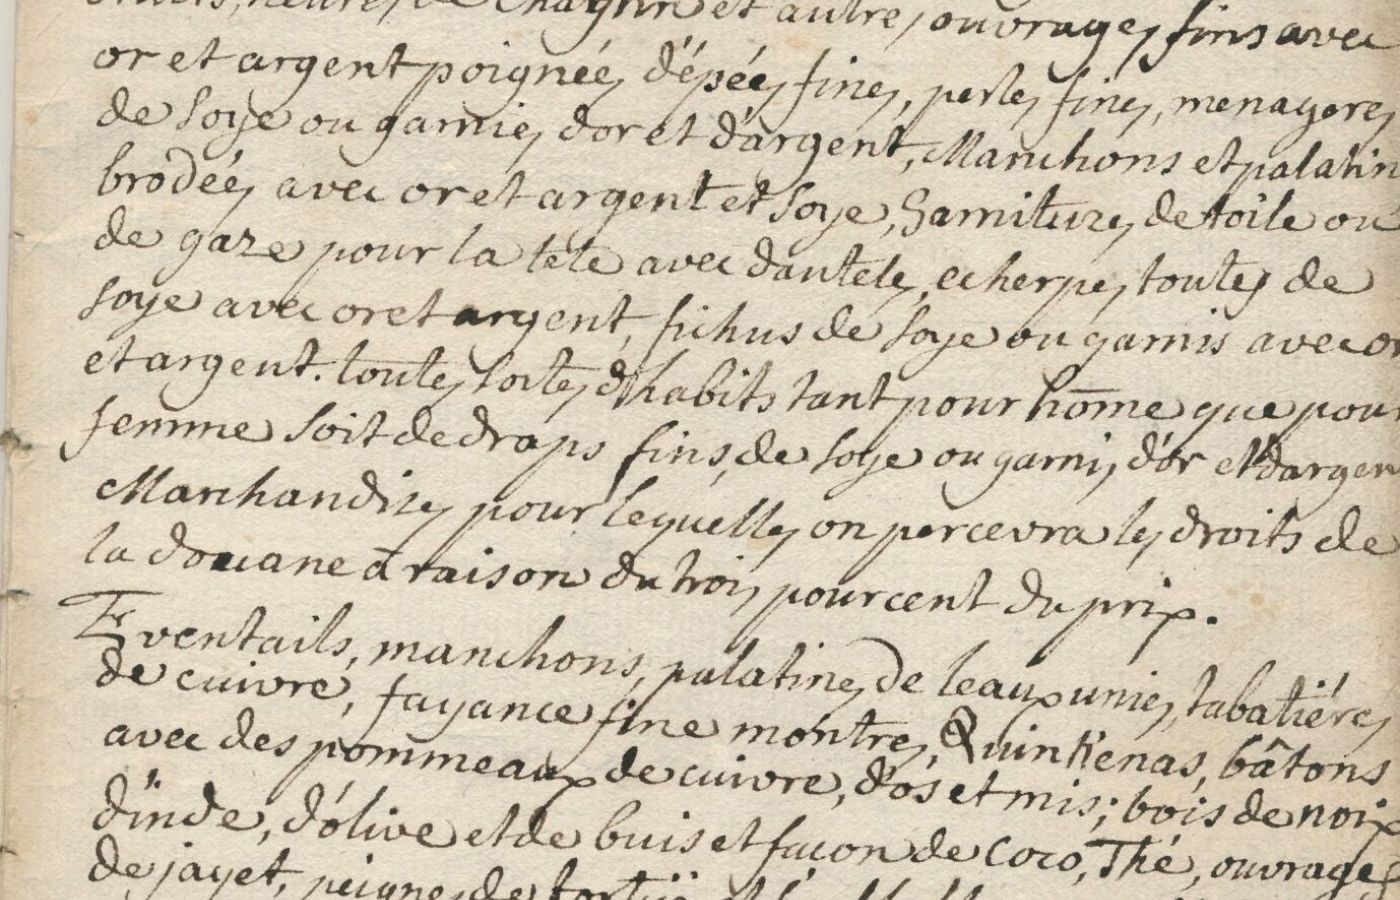 de chagrin et autres ouvrages fins avec
or et argent poignées d'épées fines, perles fines, menageres
de soye ou garnies d'or et d'argent, Manchons et palatin
brodées avec or et argent et soye, Garnitures de toile ou
de gaze pour la tete avec dantele, echerpes toutes de
soye avec or et argent, fichus de soye ou garnis avec or
et argent. toutes sortes d'habits tant pour hōme que pou
femme soit de draps fins, de soye ou garnis d'or et d'argen
Marchandises pour lequelles on percevra les droits de
la douane à raison du trois pour cent du prix.
Eventails, manchons, palatines de peaux unies, tabatiéres
de cuivre, fayance fine montres, Quinkenas, bâtons
avec des pommeaux de cuivre, d'os et mis; bois de noix
d'inde, d'olive et de buis et façon de Coco, Thé, ouvrages
de jayet, peignes de